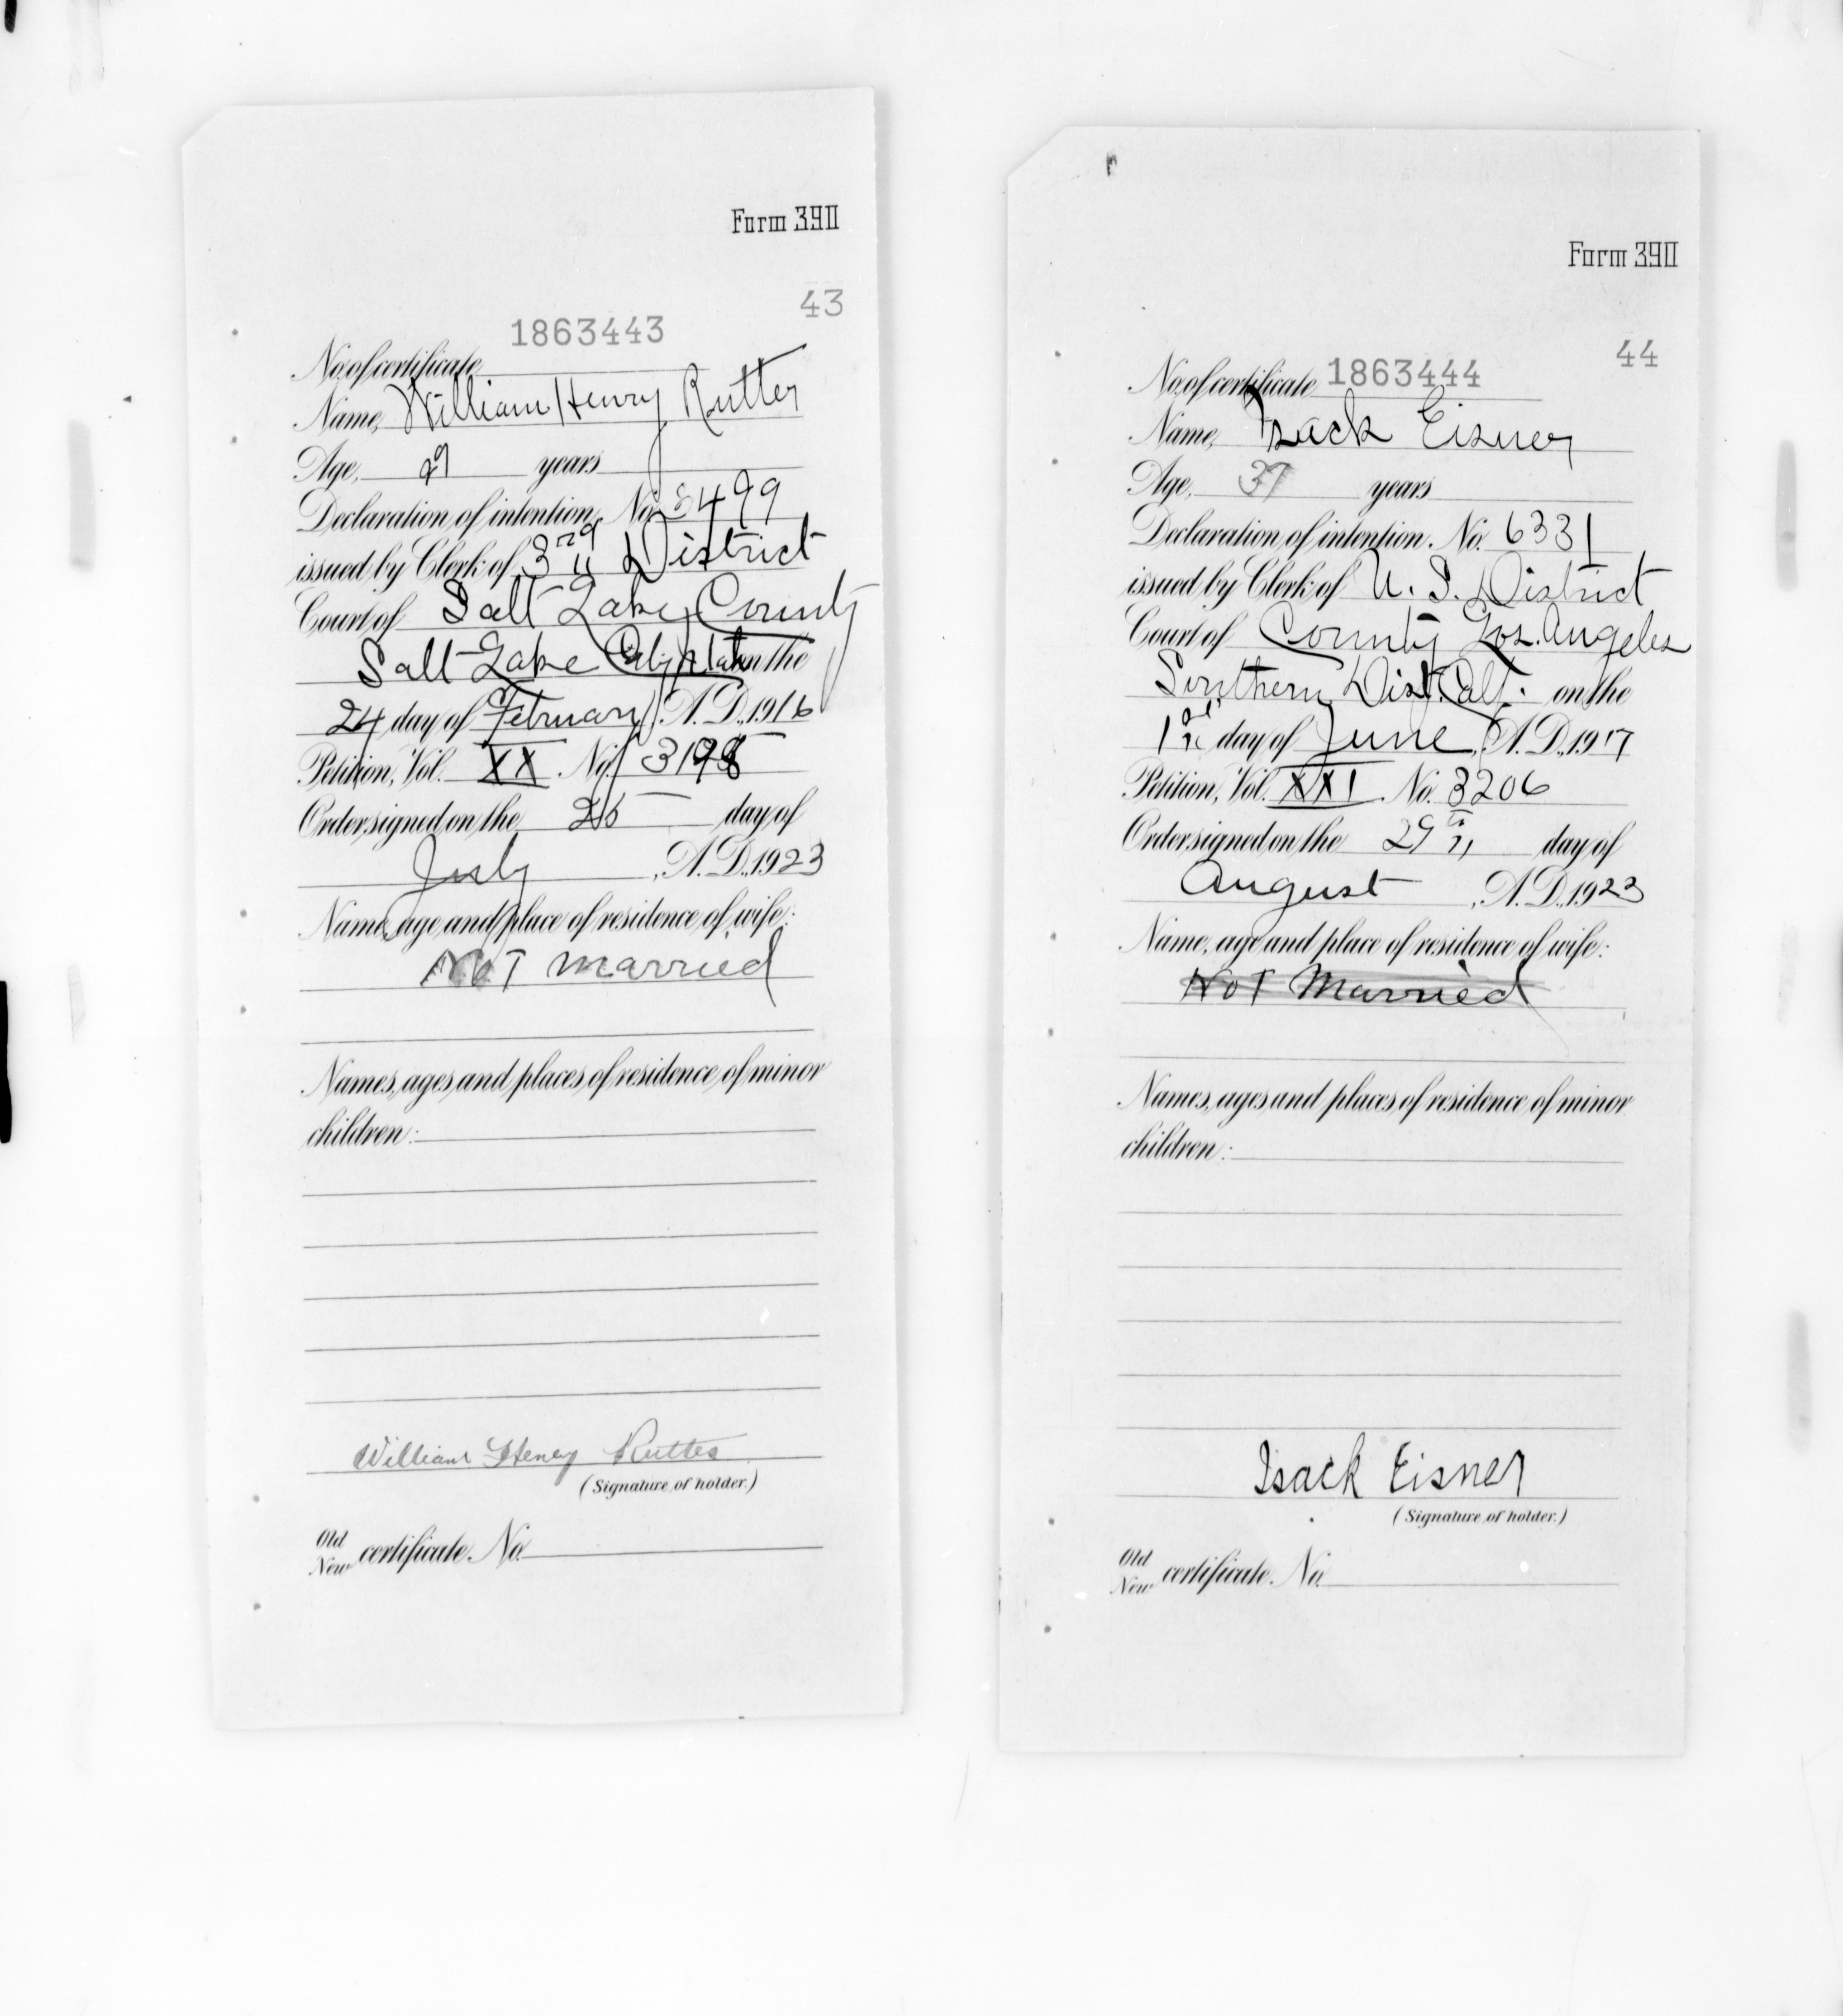 Form 390
43
1863443
No. of certificate
Name, William Henry Rutter
Age, 29 years
Declaration of intention, No. 8499
issued by Clerk of 3rd District
Court of Salt Lake County
Salt Lake City Utah on the
24 day of February, A.D., 1916
Petition, Vol. XX. No. 3198
Order signed on the 25 day of
July, A.D., 1923
Name, age and place of residence of wife:
Not married
Names, ages and places of residence of minor
children:
William Henry Rutter
(Signature of holder.)
Old
New certificate No.
Form 390
44
No. of certificate 1863444
Name, Isack Eisner
Age, 37 years
Declaration of intention, No. 6331
issued by Clerk of U. S. District
Court of County Los. Angeles
Southern Dist. Calf. on the
1st day of June, A.D., 1917
Petition, Vol. XXI. No. 3206
Order signed on the 29th day of
August, A.D., 1923
Name, age and place of residence of wife:
Not Married
Names, ages and places of residence of minor
children:
Isack Eisner
(Signature of holder.)
Old
New certificate No.